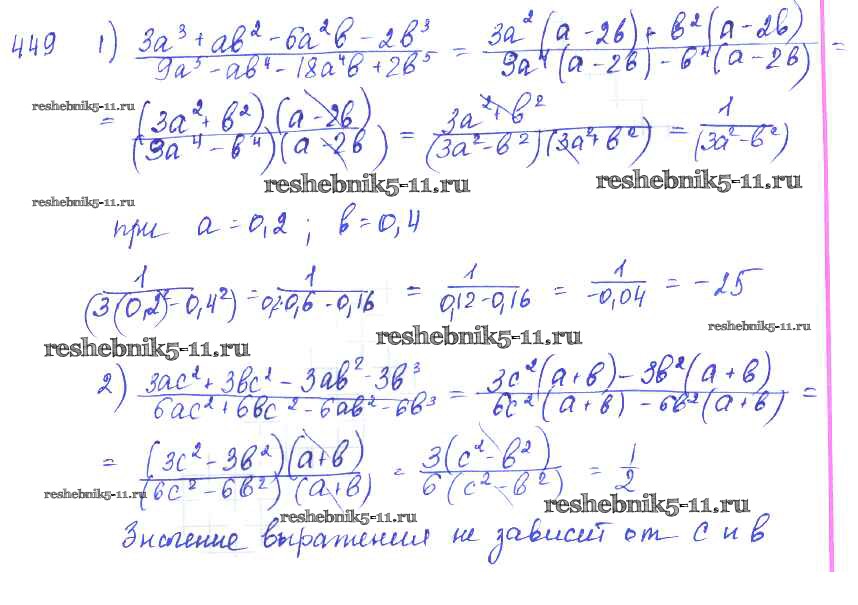 449 1) (3a³ + ab² - 6a²b - 2b³)/(9a⁵ - ab⁴ - 18a⁴b + 2b⁵) = (3a²(a - 2b) + b²(a - 2b))/(9a⁴(a - 2b) - b⁴(a - 2b)) =
reshebnik5-11.ru
= ((3a² + b²)(a - 2b))/((9a⁴ - b⁴)(a - 2b)) = (3a² + b²)/((3a² - b²)(3a² + b²)) = 1/(3a² - b²)
reshebnik5-11.ru reshebnik5-11.ru
reshebnik5-11.ru
при a = 0,2 ; b = 0,4
1/(3(0,2)² - 0,4²) = 1/(0,2·0,6 - 0,16) = 1/(0,12 - 0,16) = 1/(-0,04) = -25
reshebnik5-11.ru reshebnik5-11.ru reshebnik5-11.ru
2) (3ac² + 3bc² - 3ab² - 3b³)/(6ac² + 6bc² - 6ab² - 6b³) = (3c²(a + b) - 3b²(a + b))/(6c²(a + b) - 6b²(a + b)) =
= ((3c² - 3b²)(a + b))/((6c² - 6b²)(a + b)) = 3(c² - b²)/6(c² - b²) = 1/2
reshebnik5-11.ru reshebnik5-11.ru
reshebnik5-11.ru
Значение выражения не зависит от c и b